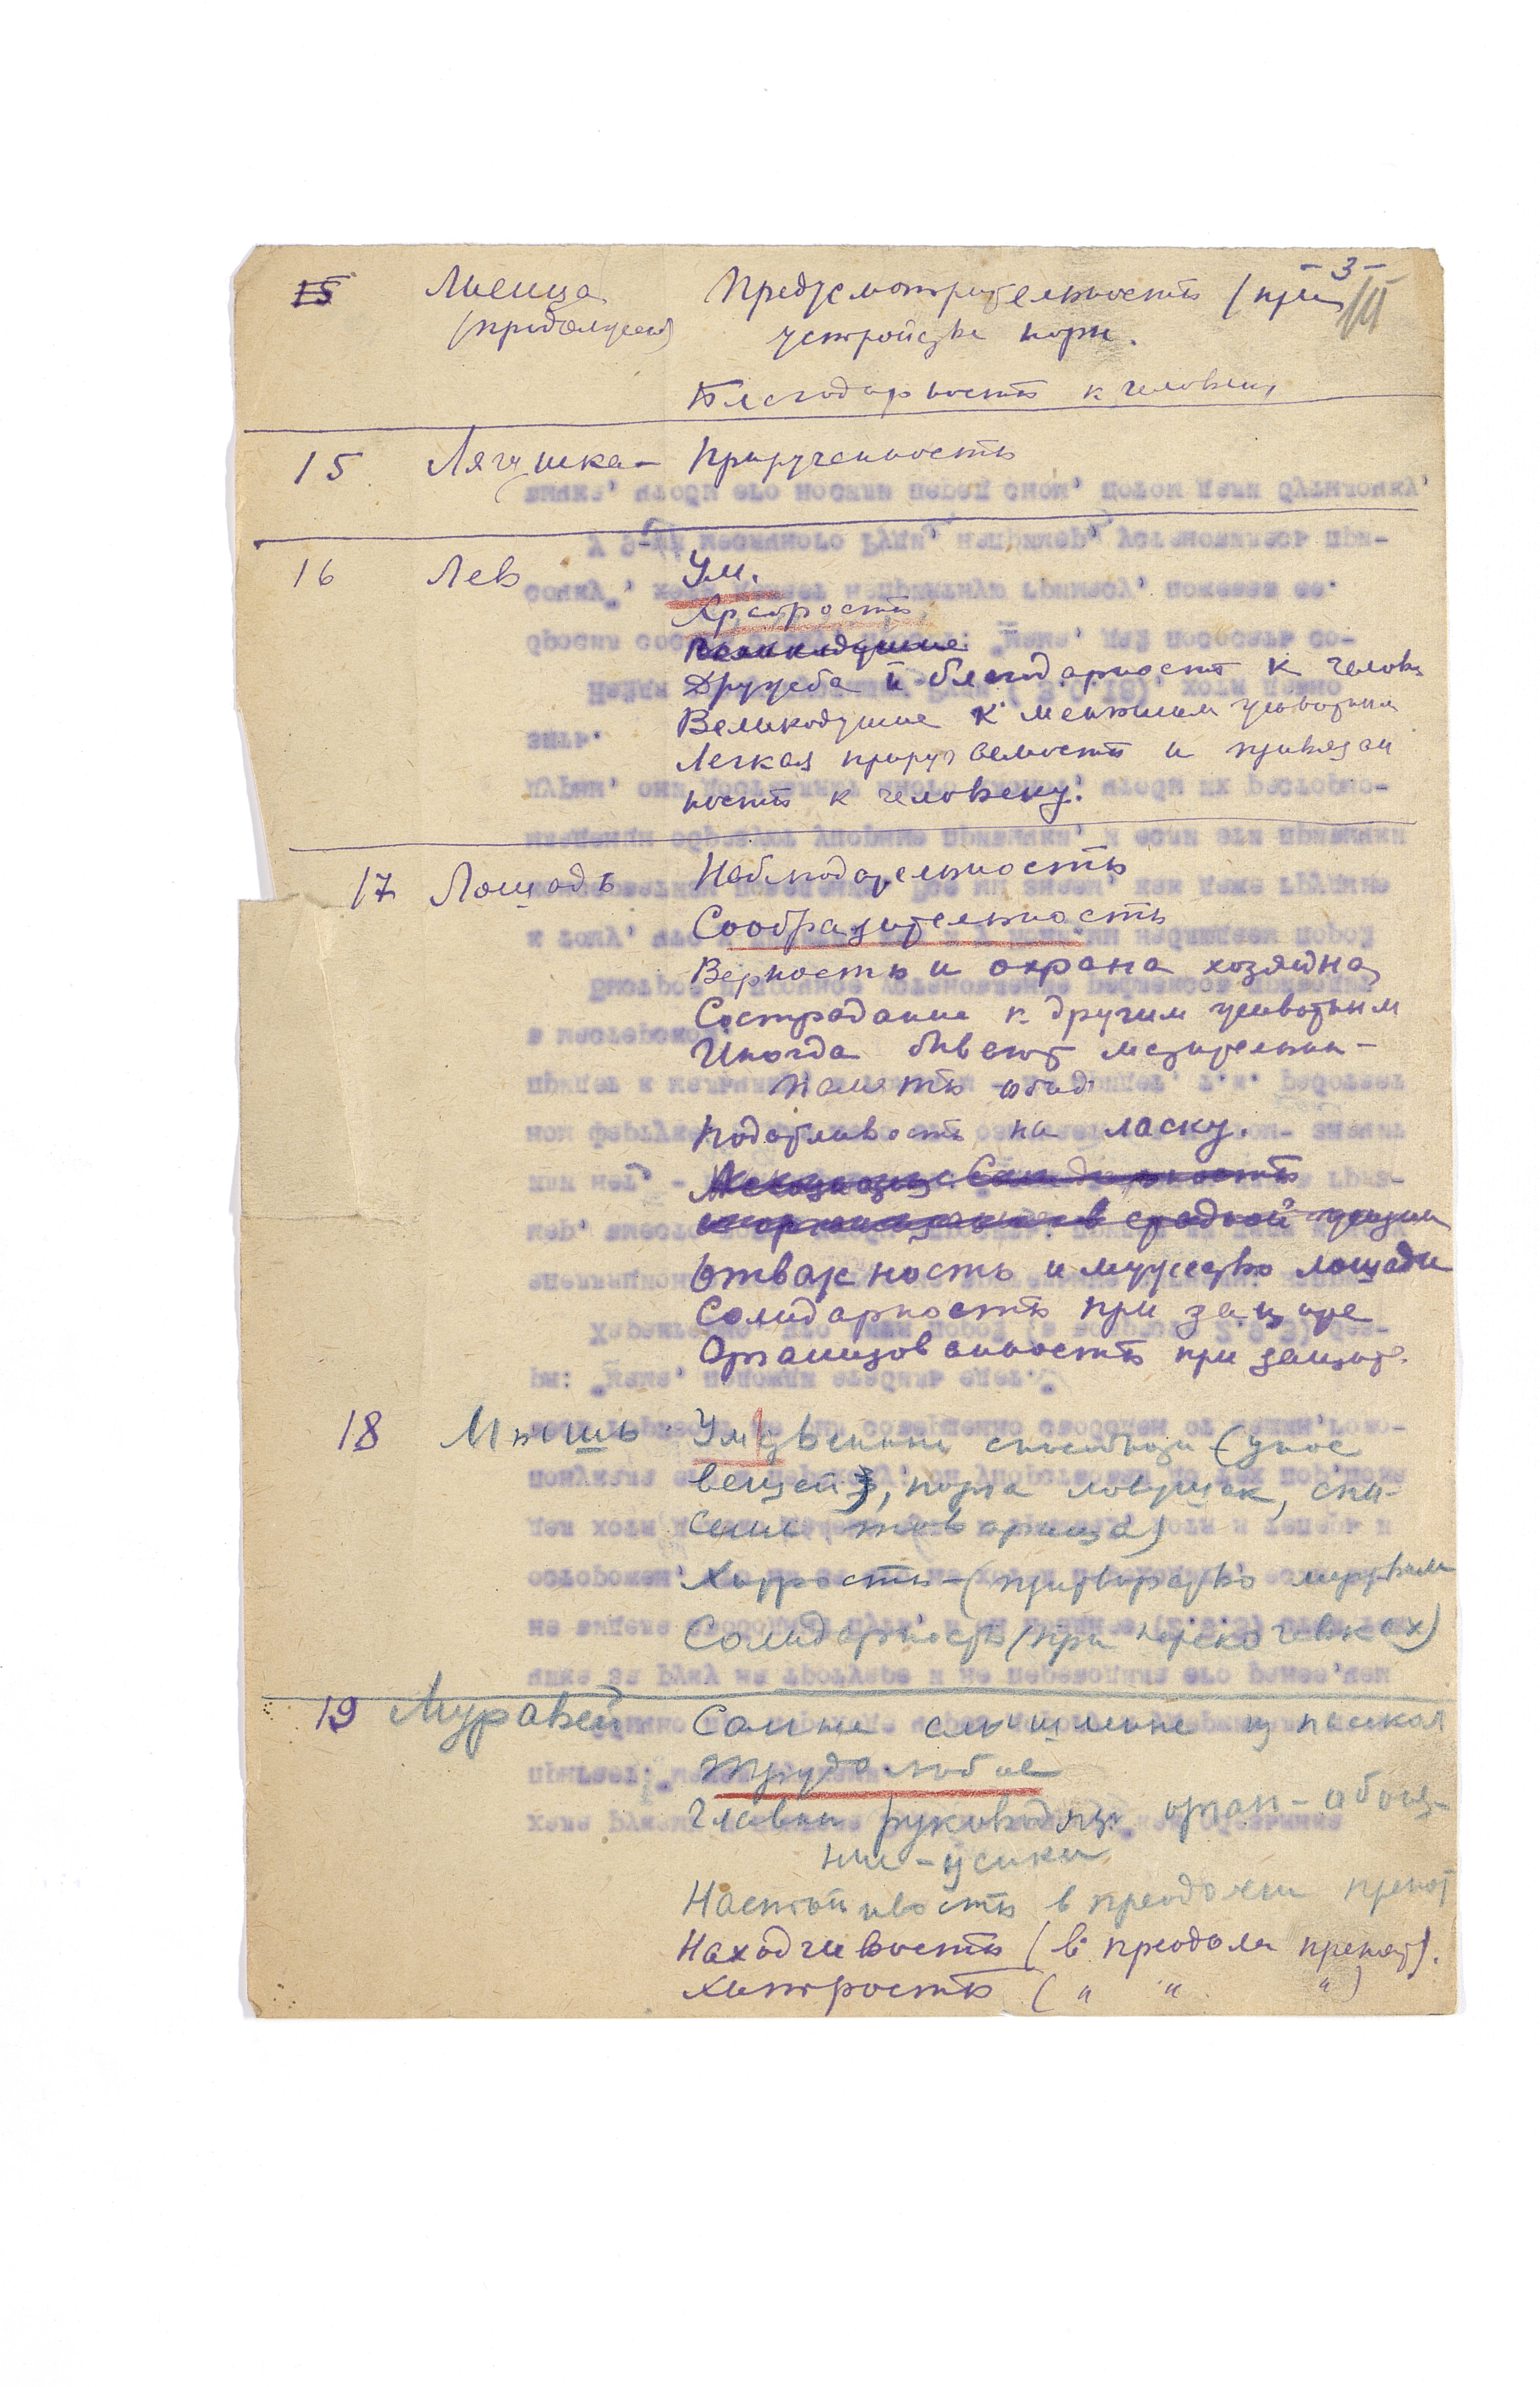 - 3 -
III
15 Лисица Предусмотрительность (при
(продолжен) устройстве норы.
Благодарность к человеку
15 Лягушка - Прирученность
16 Лев Ум.
Храбрость
Великодушие
Дружба и благодарност к челов
Великодушие к меньшим животным
Легкая приручаемость и привязан
ность к человеку.
17 Лошадь Наблюдательность
Сообразительность
Верность и охрана хозяина
Сострадание к другим животным
Иногда бывают мстительны -
память обид
Податливость на ласку.
Солидарность
и организованность в средной жизни
Отважность и мужество лошади
Солидарность при защите
Организованность при защите.
18 Мышь Умственные способности (унос
вещей), порча ловушек, спа-
сение товарища)
Хитрость - (притворство мертвым
Солидарность (при перекочевках)
19 Муравей Самые смышленые из насеком
Трудолюбие
Главн руководящ орган - обоня-
ние - усики
Настойчивость в преодолен препят
Находчивость (в преодолен препят).
Хитрость ( " " " )